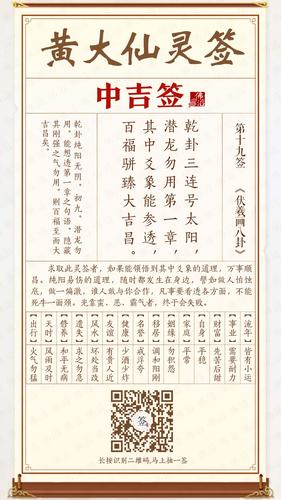 黄大仙灵签
中吉签
第十九签 《伏羲画八卦》
乾卦三连号太阳，
潜龙勿用第一章，
其中爻象能参透，
百福骈臻大吉昌。
乾卦纯阳无阴，初九，潜龙勿
用，能想透第一章之句语，隐藏
其刚强之气勿用，则百福至而大
吉昌矣。
求取此灵签者，如果能领悟到其中爻象的道理，万事顺
昌。纯阳易伤的道理，随时都发生在身边，譬如做人怕蚀
底，做一偏激，谁人敢与你合作，凡事要看透各方面，不能
死牛一面颈。先靠蛮、恶、霸气者，终于会失败。
【流年】皆有小运
【事业】需要耐力
【财富】先苦后甜
【自身】平稳
【家庭】平常
【姻缘】勿积怨
【移居】调和阳刚
【名誉】戒浮夸
【健康】少酒少炸
【友情】有贵人近
【风水】坏处当改
【遗失】求之勿急
【营养】和平无病
【天时】风雨及时
【出行】火气勿猛
签
长按识别二维码,马上抽一签